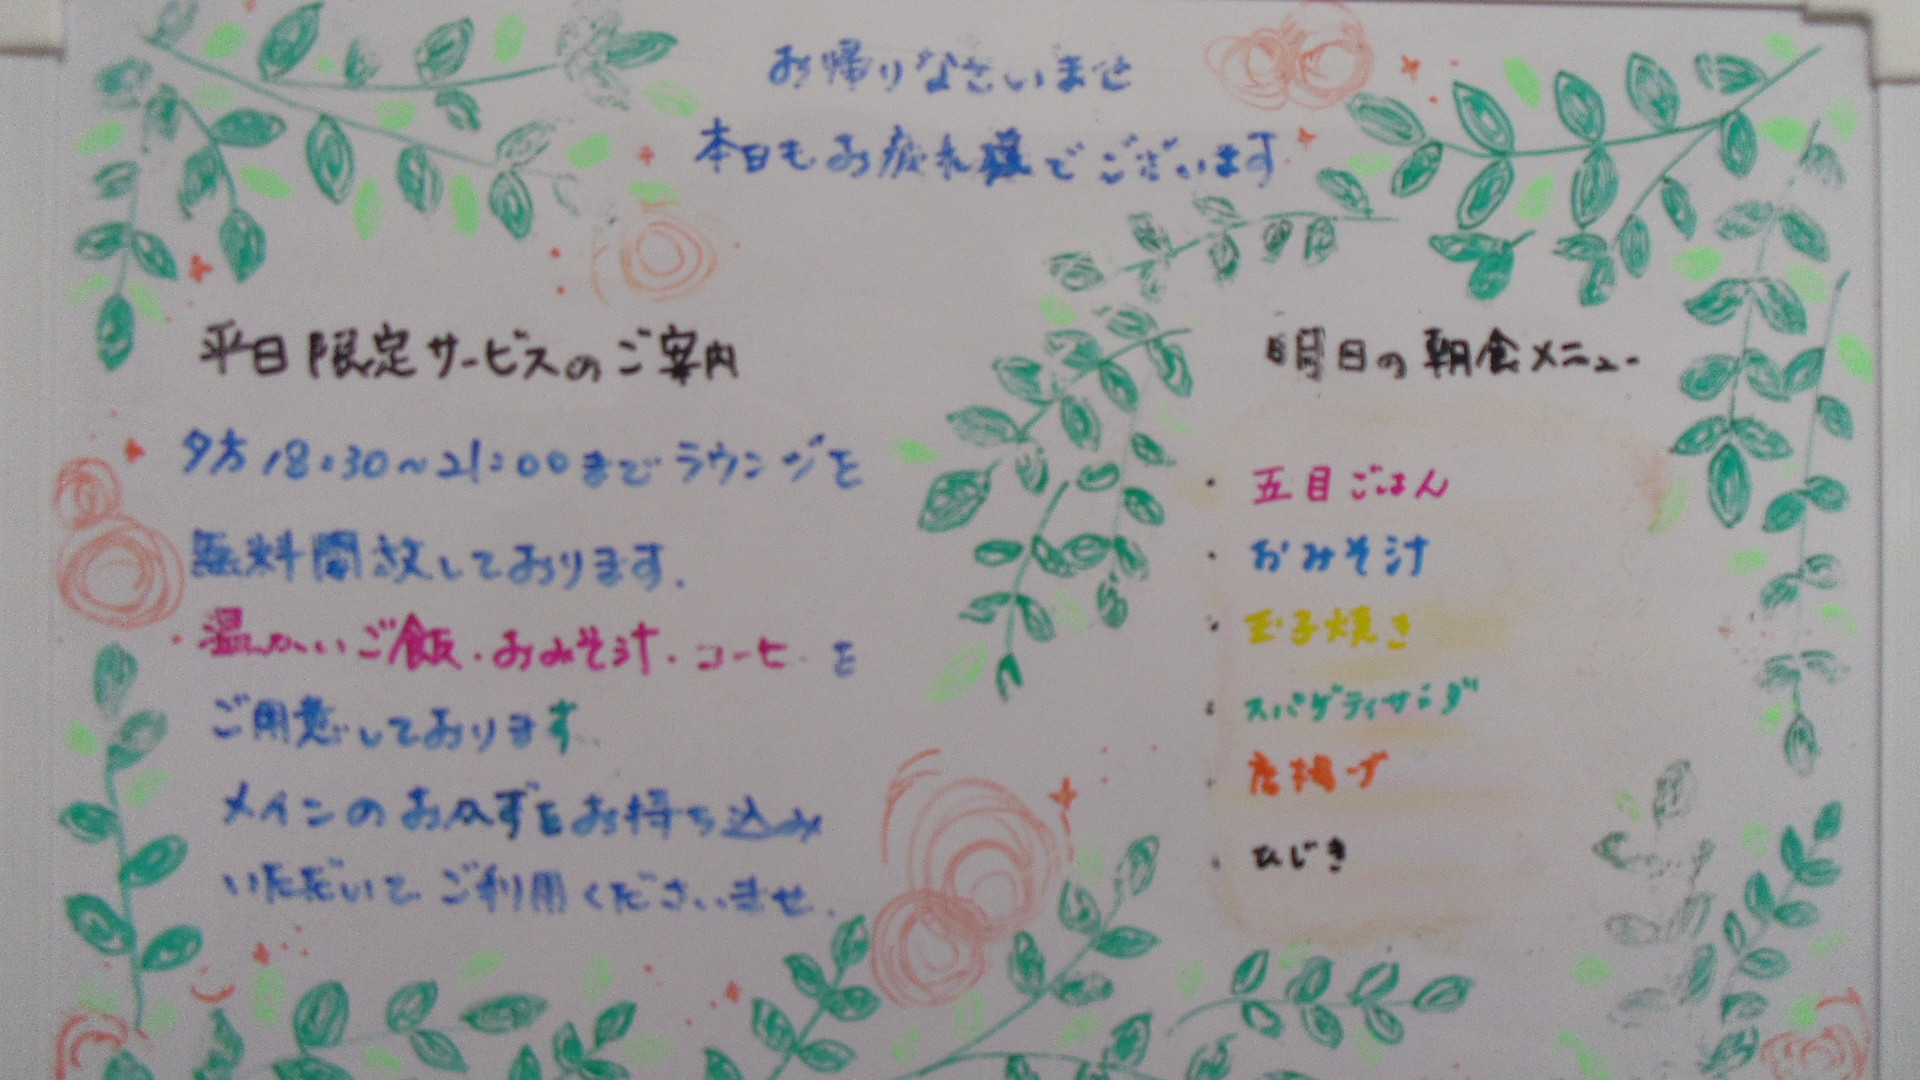 お帰りなさいませ
本日もお疲れ様でございます
平日限定サービスのご案内
夕方18:30～21:00までラウンジを
無料開放しております.
温かいご飯・おみそ汁・コーヒーを
ご用意しております.
メインのおかずをお持ち込み
いただいてご利用くださいませ.
明日の朝食メニュー
・五目ごはん
・おみそ汁
・玉子焼き
・スパゲティサラダ
・唐揚げ
・ひじき